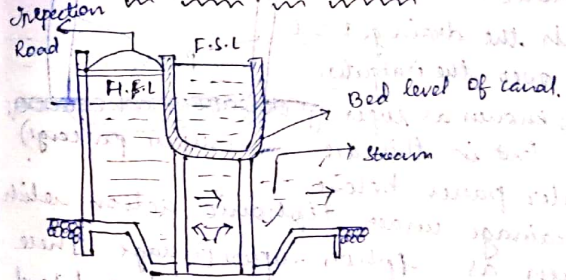 Inspection
Road
F.S.L
H.F.L
Bed level of canal.
Stream